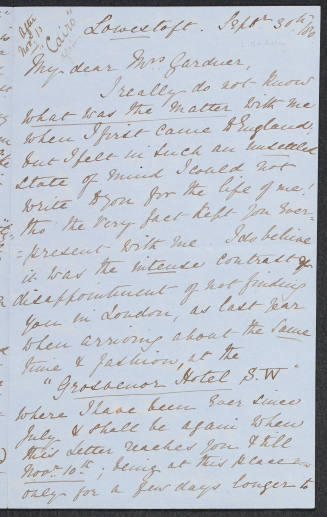 After
Nov. 13
"Cairo"
Lowestoft. Sept. 30th
My dear Mrs Gardner,
I really do not know
what was the matter with me
when I first came to England!
but I felt in such an unsettled
state of mind I could not
write to you for the life of me!
tho' the very fact kept you ever-
=present with me I do believe
it was the intense contrast &
disappointment of not finding
you in London, as last year
when arriving about the same
time & fashion, at the
"Grosvenor Hotel S.W"
where I have been ever since
July & shall be again when
this letter reaches you & till
Novr. 10th; being at this place
only for a few days longer to